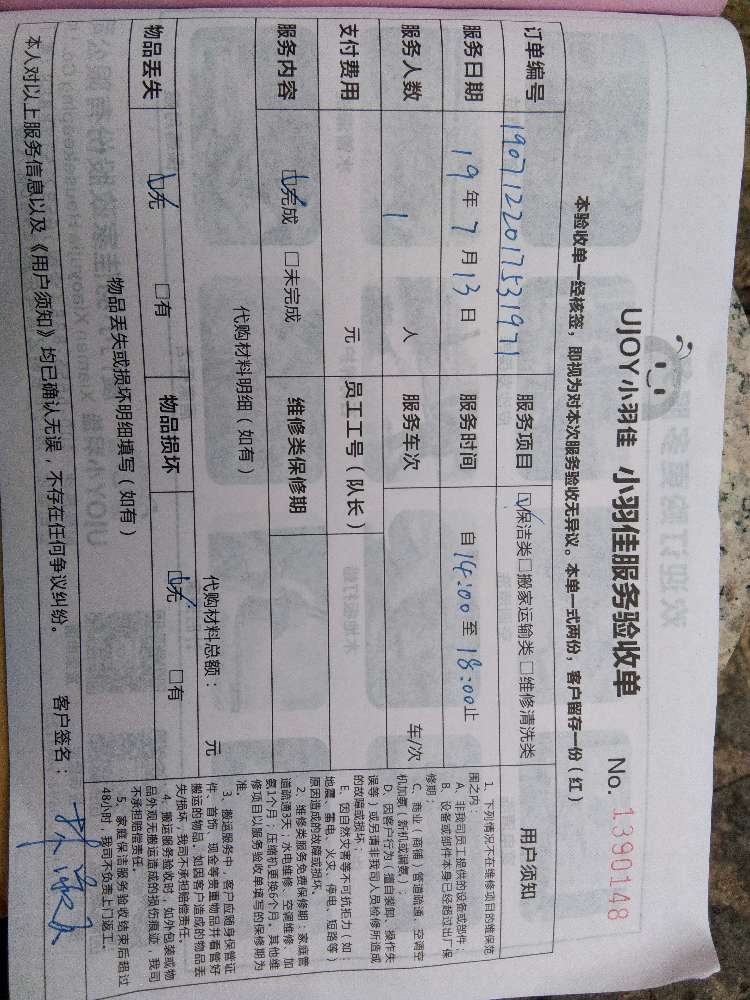 UJOY小羽佳 小羽佳服务验收单 No. 1390148
本验收单一经核签，即视为对本次服务验收无异议。本单一式两份，客户留存一份（红）
订单编号 1907122017531971 服务项目 ☑保洁类□搬家运输类□维修清洗类
服务日期 19年7月13日 服务时间 自14:00至18:00止
服务人数 1 人 服务车次 车/次
支付费用 元 员工工号（队长）
服务内容 ☑完成 □未完成 维修类保修期
代购材料明细（如有）
代购材料总额： 元
物品丢失 ☑无 □有 物品损坏 ☑无 □有
物品丢失或损坏明细填写（如有）
本人对以上服务信息以及《用户须知》均已确认无误，不存在任何争议纠纷。 客户签名：
用户须知
1、下列情况不在维修项目的维保范
围之内：
A、非我司员工提供的设备或部件；
B、设备或部件本身已经超过出厂保
修期；
C、商业（商铺）管道疏通、空调空
机加氨（新机或漏氨）；
D、因客户行为（擅自装卸、操作失
误等）或另请非我司人员检修所造成
的故障或损坏；
E、因自然灾害等不可抗拒力（如：
地震、雷电、火灾、停电、短路等）
原因造成的故障或损坏。
2、维修类服务免费保修期：家庭管
道疏通3天；水电维修、空调维修、加
氨1个月；压缩机更换6个月。其他维
修项目以服务验收单填写的保修期为
准。
3、搬运服务中，客户应随身保管证
件、首饰、现金等贵重物品并看管好
搬运的物品，如因客户造成的物品丢
失/损坏，我司不承担赔偿责任。
4、搬运服务验收时，如外包装或物
品外观无搬运造成的损伤痕迹，我司
不承担赔偿责任。
5、家庭保洁服务验收结束后超过
48小时，我司不负责上门返工。